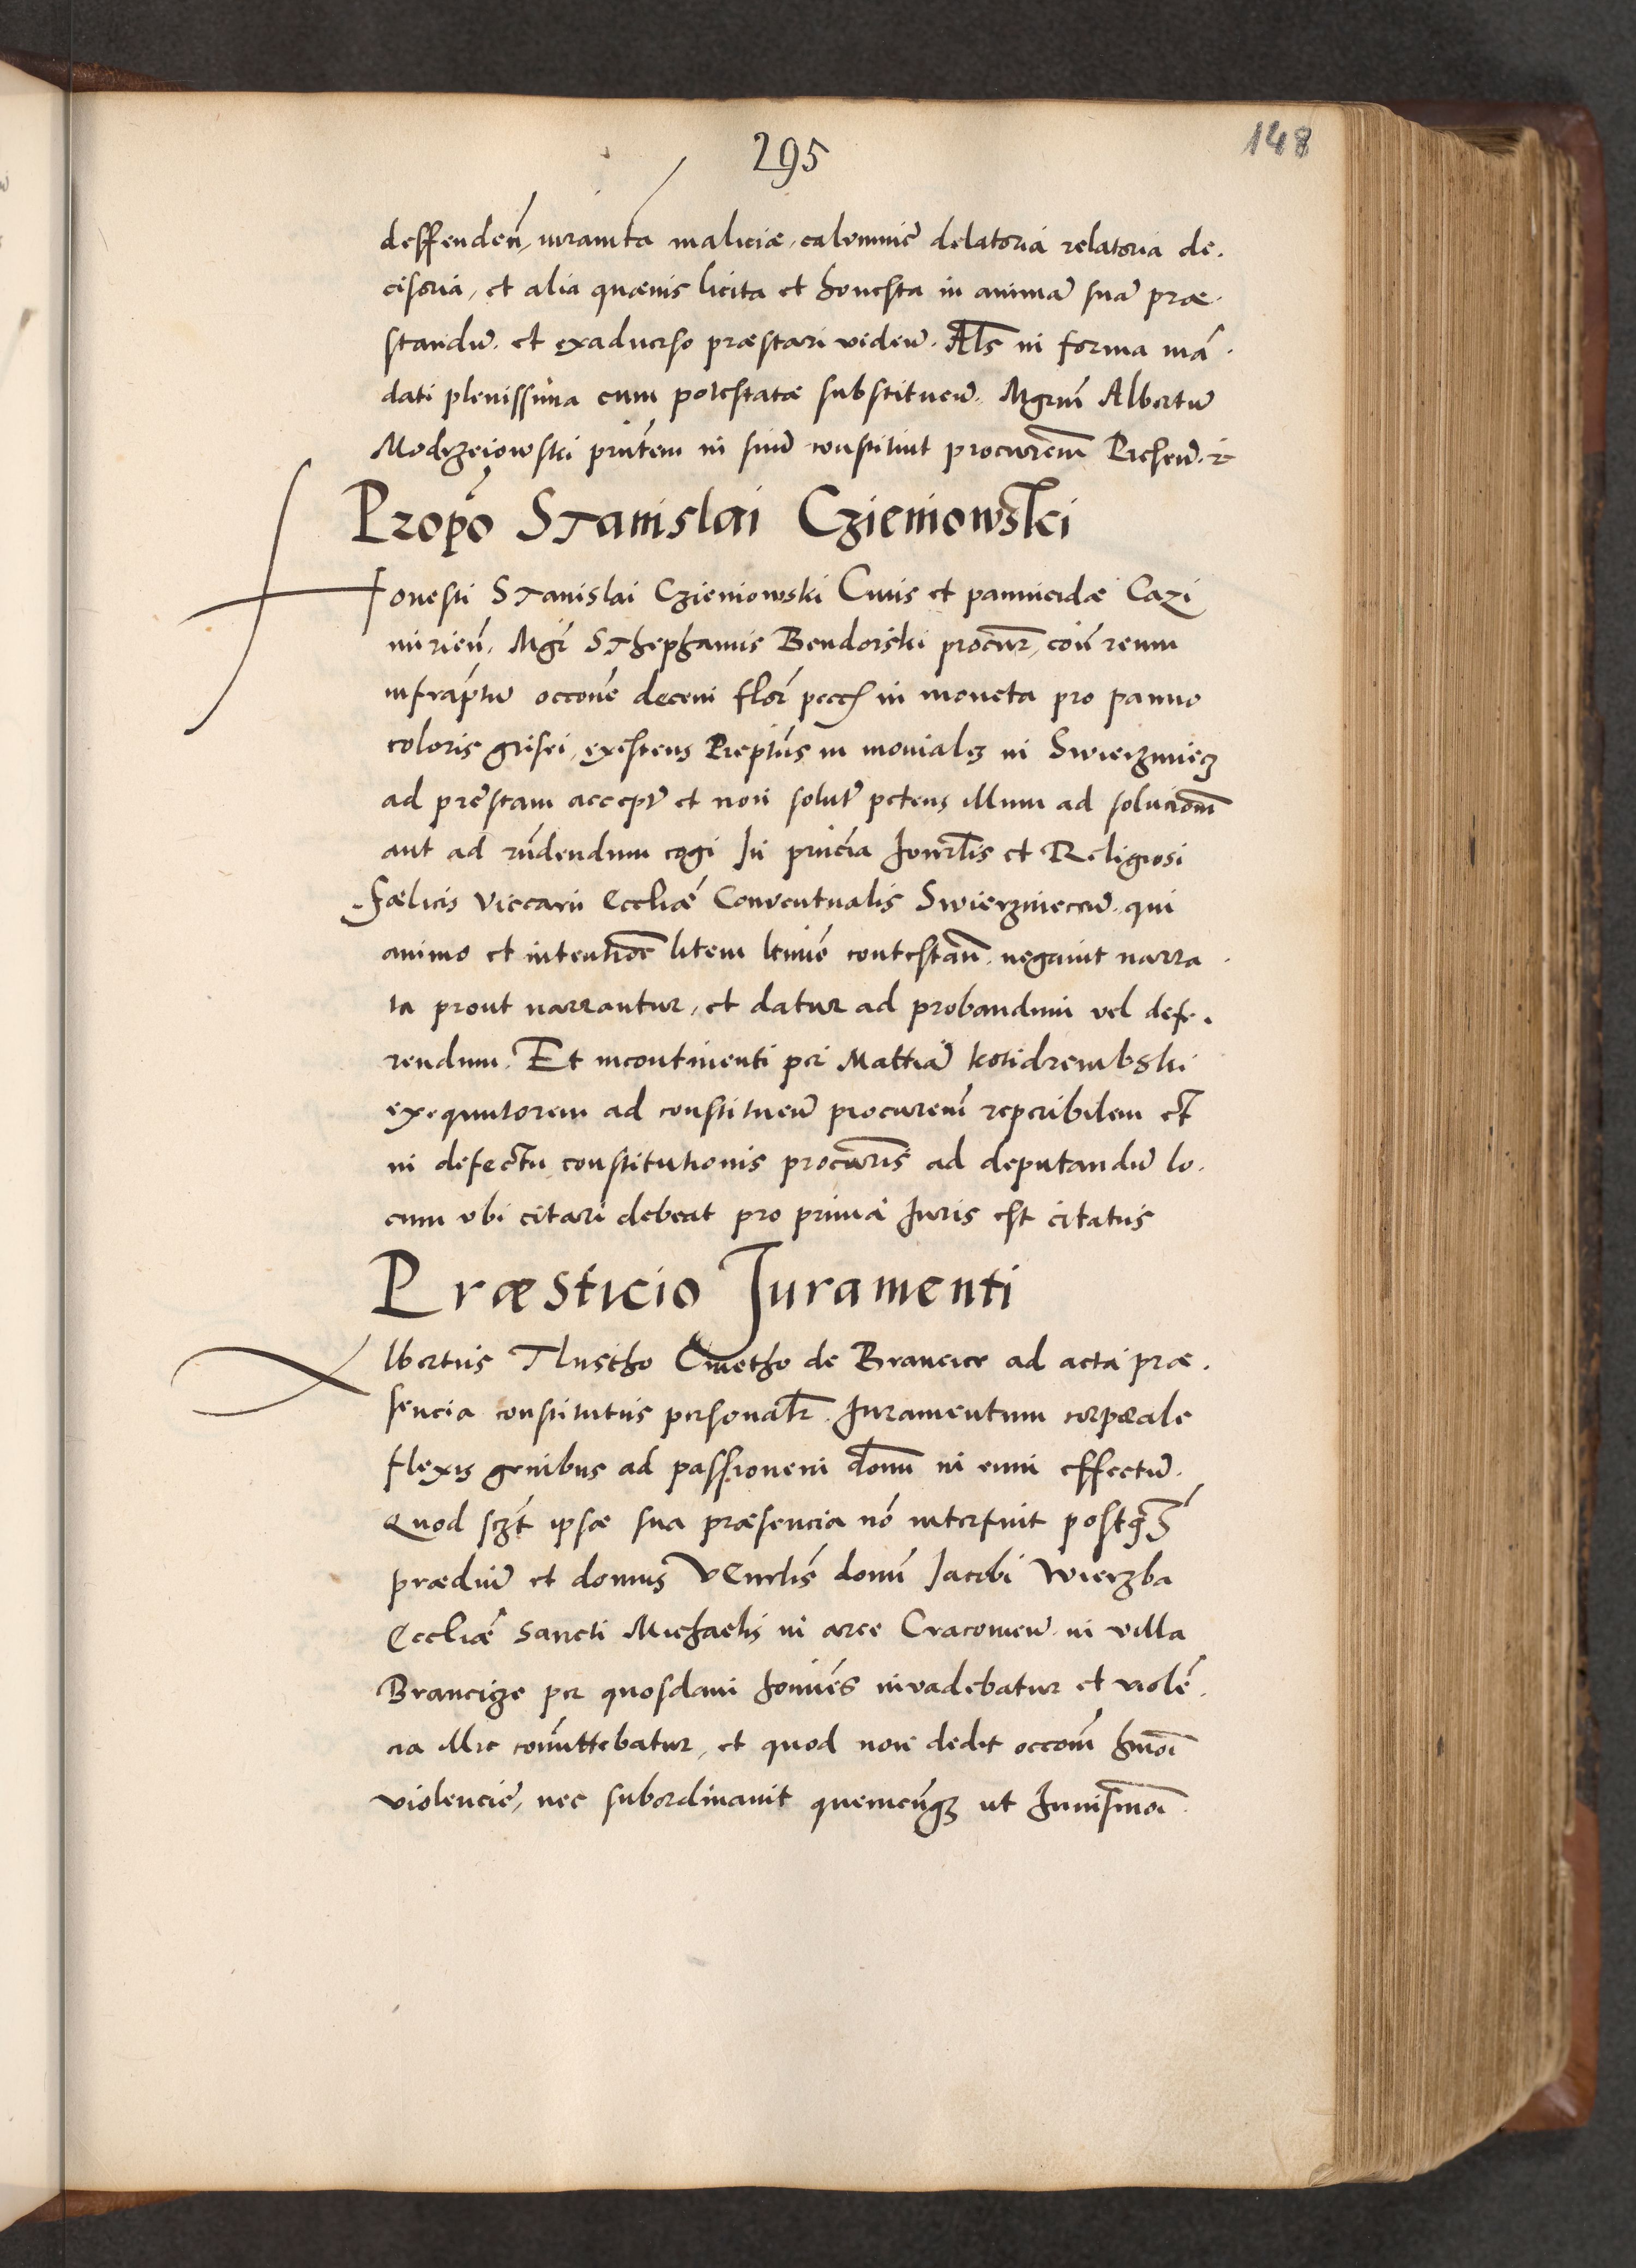 295
148
deffendeñ, iuramta maliciæ, calumniē delatoria relatoria de.
cisoria, et alia quævis licita et honesta in animā suā præ.
standū. et exadverso præstari videñ. Als in forma mā.
dati plenissima cum potestatæ substitueñ. Mgrm̄ Albertū
Modrzeiowski pn̄tem in suū constituit procurem̄
Propō Stanislai Czieniowski
Honesti Stanislai Czieniowski Civis et pannicidæ Cazi
mirieñ, Mgr̄ Sthephanus Bendorski procur̄, con̄ reum
infrāptū occone decem flor̄ in moneta pro panno
coloris grisei, existens in monialʒ in Swierzniecʒ
ad præstam accept̄ et non solut̄ petens illum ad solucionē
aut ad rn̄dendum cogi In pn̄cia honrl̄is et Religiosi
Fælicis Viccarii Eccliæ Conventualis Swierznieceñ. qui
animo et intentiōe litem contestañ. negavit narra.
ta prout narrantur, et datur ad probandum vel defe.
rendum. Et incontinenti per Mattiā Kotidrembski
exequutorem ad constitueñ procurem̄ reperibilem et
in defectu constitutionis procuris̄ ad deputandū lo.
cum ubi citari debeat pro prima Iuris est citatus
Præsticio Juramenti
Albertus Tlustho Cmetho de Brancice ad acta præ.
sencia constitutus personalr̄. Iuramentum corporale
flexis genibus ad passionem dom̄ in eum effectū.
Quod sczt̄ ipsæ sua præsencia nō interfuit postqʒ̄
prædiū et domus Venrl̄is dom̄ Jacobi Wierzba
Eccliæ Sancti Michaelis in arce Cracovieñ. in villa
Brancicze per quosdam homīes invadebatur et violē.
cia illic com̄ittebatur, et quod non dedit occom̄ hmōi
violenciē, nec subordinavit quemcūqʒ ut